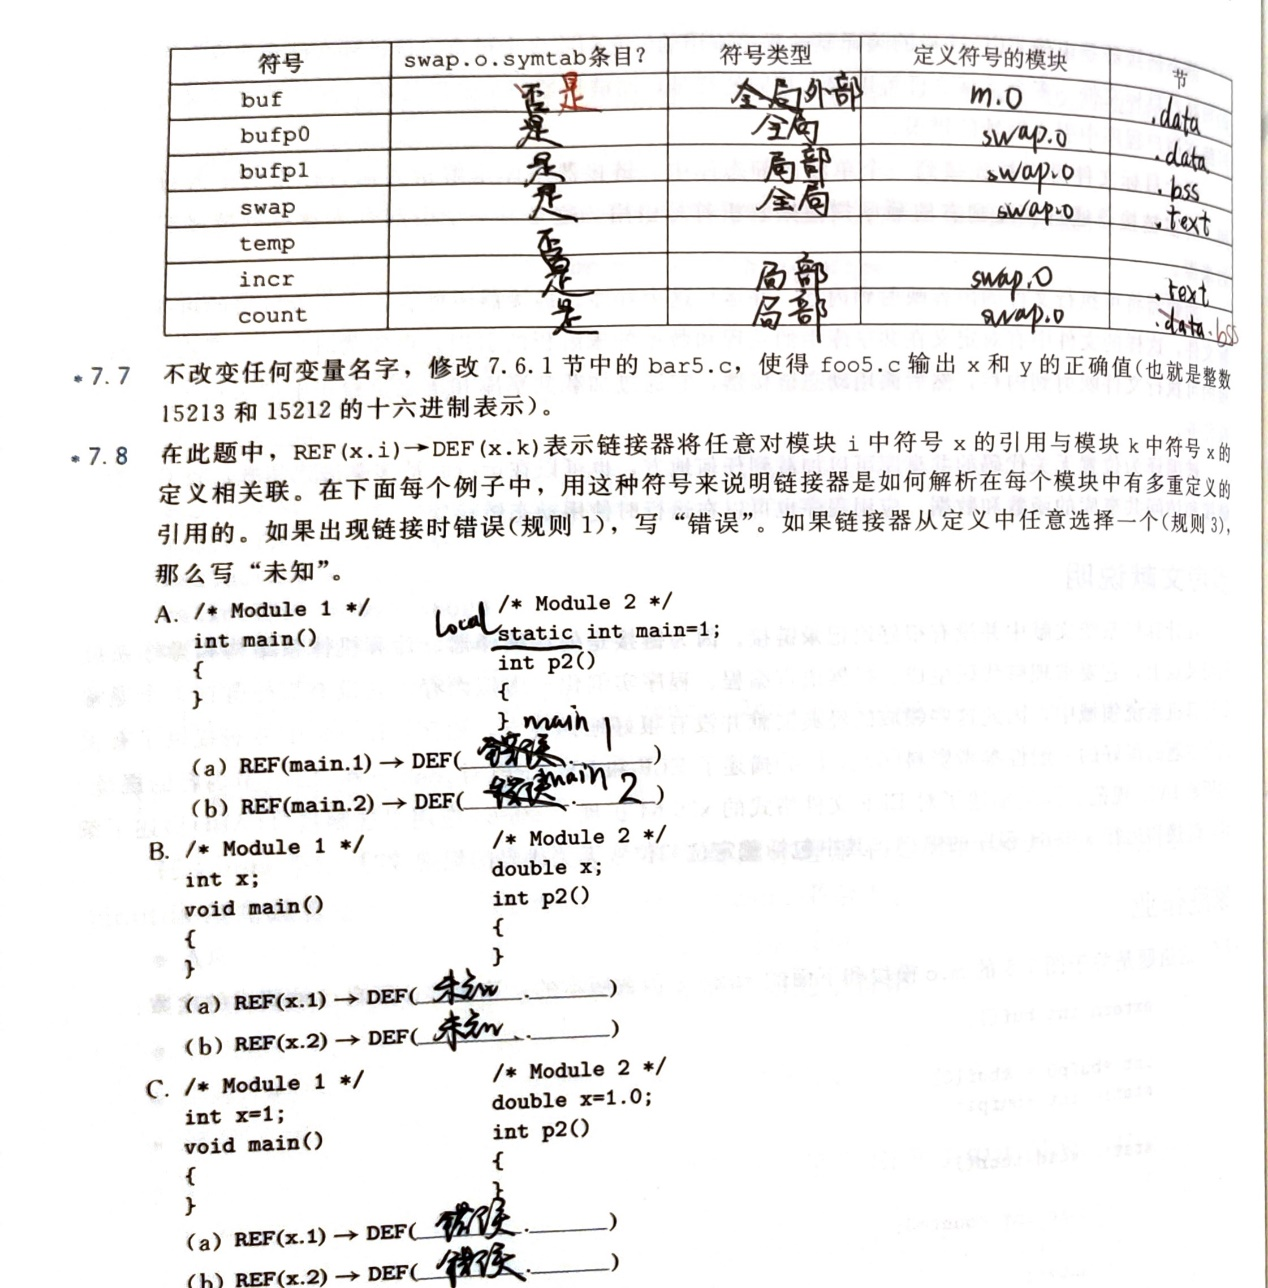 符号 swap.o.symtab条目? 符号类型 定义符号的模块 节
buf 否 是 全局外部 m.o .data
bufp0 是 全局 swap.o .data
bufp1 是 局部 swap.o .bss
swap 是 全局 swap.o .text
temp 否
incr 是 局部 swap.o .text
count 是 局部 swap.o .data .bss
*7.7 不改变任何变量名字，修改 7.6.1 节中的 bar5.c，使得 foo5.c 输出 x 和 y 的正确值(也就是整数
15213 和 15212 的十六进制表示)。
*7.8 在此题中，REF(x.i)→DEF(x.k)表示链接器将任意对模块 i 中符号 x 的引用与模块 k 中符号 x 的
定义相关联。在下面每个例子中，用这种符号来说明链接器是如何解析在每个模块中有多重定义的
引用的。如果出现链接时错误(规则 1)，写“错误”。如果链接器从定义中任意选择一个(规则 3)，
那么写“未知”。
A. /* Module 1 */ /* Module 2 */
int main() local static int main=1;
{ int p2()
} {
}
main 1
(a) REF(main.1) → DEF( 错误 . )
main 2
(b) REF(main.2) → DEF( 错误 . )
B. /* Module 1 */ /* Module 2 */
int x; double x;
void main() int p2()
{ {
} }
(a) REF(x.1) → DEF( 未知 . )
(b) REF(x.2) → DEF( 未知 . )
C. /* Module 1 */ /* Module 2 */
int x=1; double x=1.0;
void main() int p2()
{ {
} }
(a) REF(x.1) → DEF( 错误 . )
(b) REF(x.2) → DEF( 错误 . )